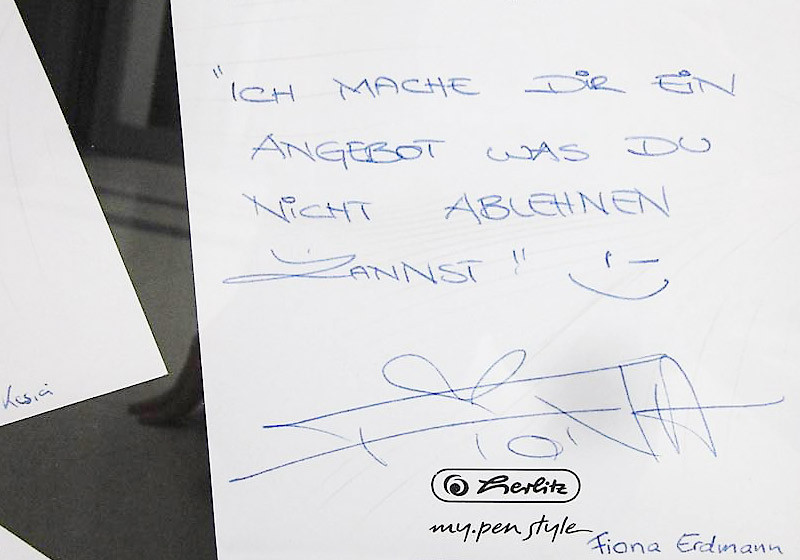 "ICH MACHE DIR EIN
ANGEBOT WAS DU
NICHT ABLEHNEN
KANNST"
Herlitz
my.pen style
Fiona Erdmann